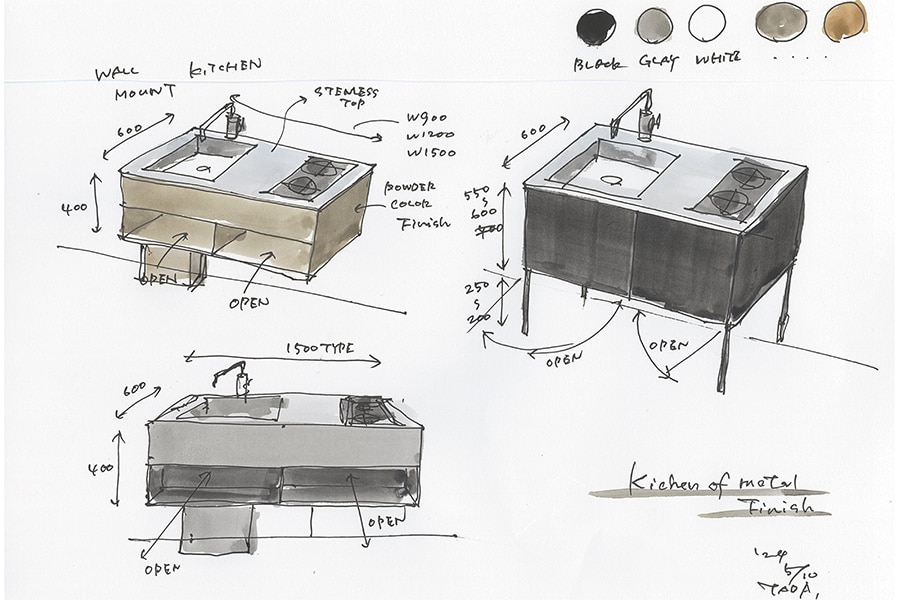 BLACK GLAY WHITE ....
WALL KITCHEN
MOUNT
STENLESS
TOP
600
W900
W1200
W1500
400
POWDER
COLOR
Finish
OPEN
OPEN
600
550
600
700
250
200
OPEN
OPEN
1500TYPE
600
400
OPEN
OPEN
Kichen of metal
Finish
'24
5/10
TADA,